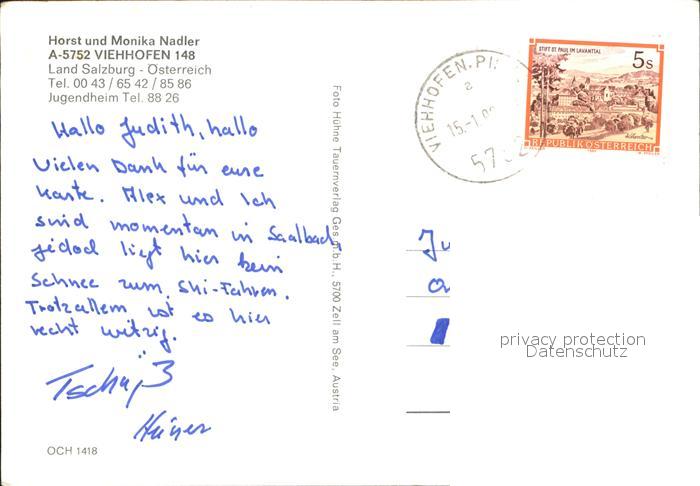 Horst und Monika Nadler
A-5752 VIEHHOFEN 148
Land Salzburg - Österreich
Tel. 00 43 / 65 42 / 85 86
Jugendheim Tel. 88 26
Hallo Judith, hallo
Vielen Dank für eure
Karte. Alex und Ich
sind momentan in Saalbach,
jedoch liegt hier kein
Schnee zum Ski-Fahren.
Trotzallem ist es hier
recht witzig.
Tschüß
OCH 1418
Foto Hühne Tauernverlag Ges.m.b.H., 5700 Zell am See, Austria
VIEHHOFEN, PI
a
15.-1.
STIFT ST. PAUL IM LAVANTTAL
5 S
REPUBLIK ÖSTERREICH
Ju
privacy protection
Datenschutz